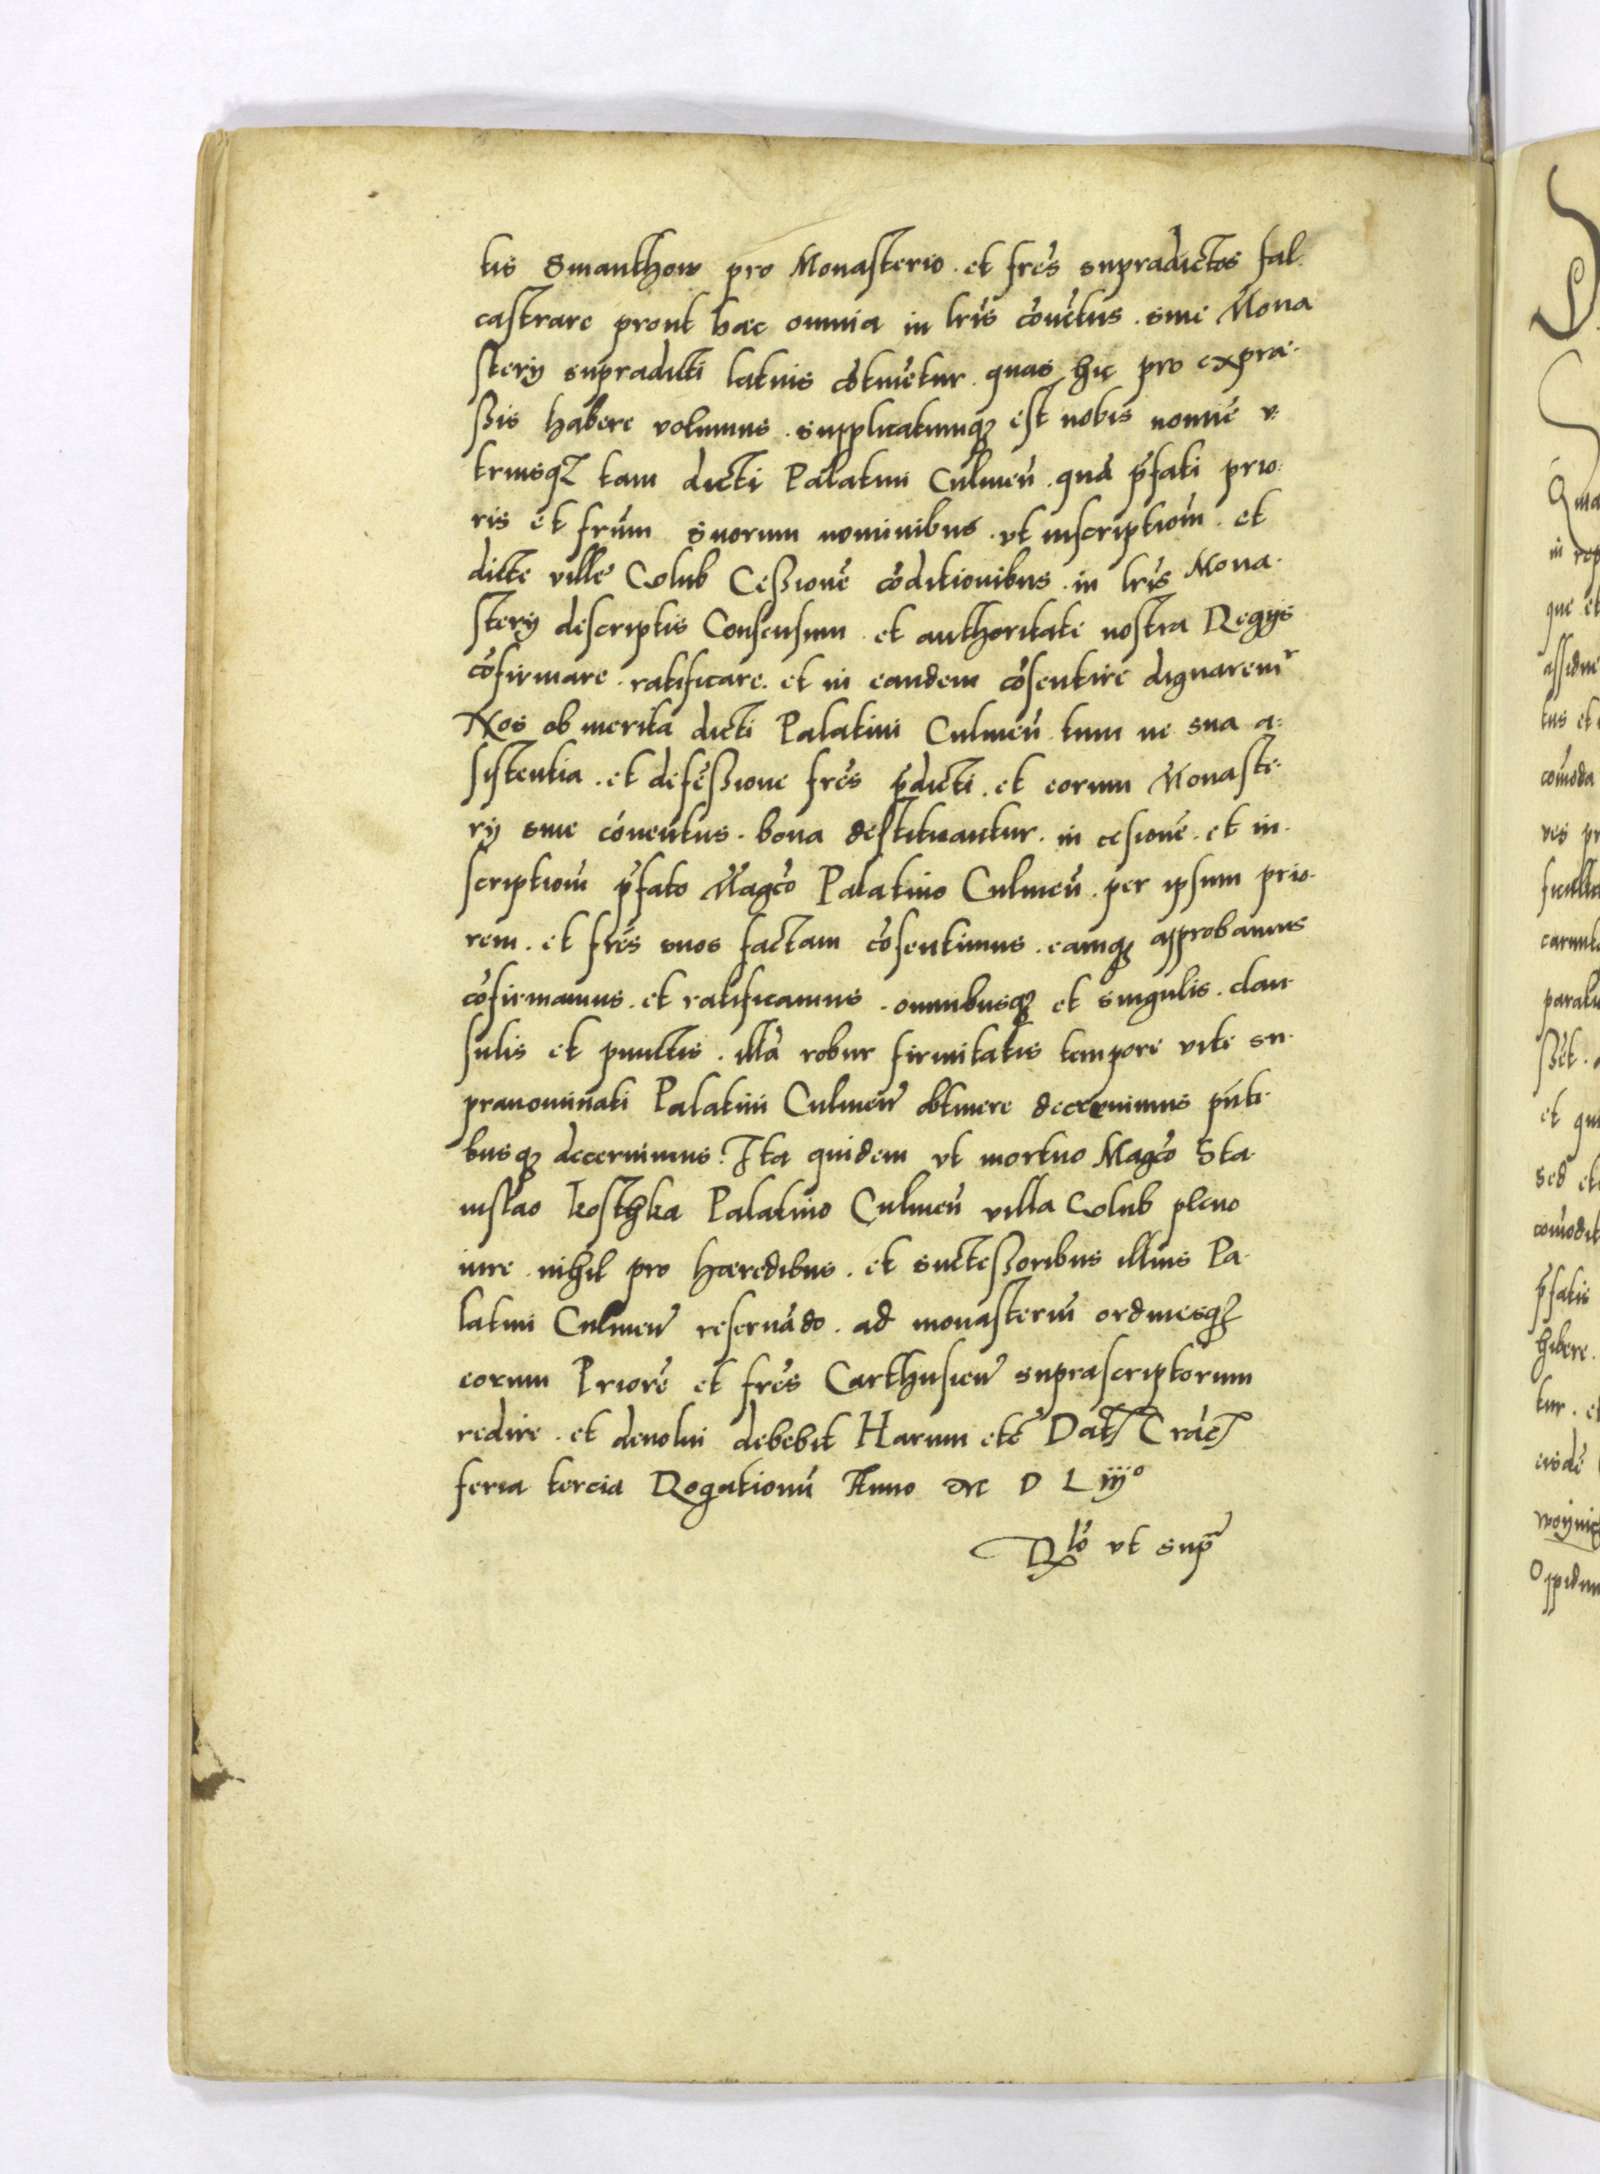 tis Smanthow pro Monasterio . et frēs supradictos fal
castrare prout hæc omnia in lrīs cōvētus . sive Mona
stery supradicti latius cōtinētur . quas hic pro expræ
ßis habere volumus . supplicatumqꝫ est nobis nomīe v
triusqꝫ tam dicti Palatini Culmeñ . quā p̄fati prio
ris et frūm suorum nominibus . vt inscriptioni . et
dicte ville Colub Ceßionē cōditionibus . in lrīs Mona
stery descriptis Consensum . et authoritate nostra Regiis
cōfirmare . ratificare . et in eandem cōsentire dignaremr
Nos ob merita dicti Palatini Culmeñ . tum ne sua a
sistentia . et defēßione frēs p̄dicti . et eorum Monaste
ry sive cōventus . bona destituantur . in cesionē . et in
scriptionī p̄fato Magcō Palatino Culmeñ . per ipsum prio
rem . et frēs suos factam cōsentimus . eamqꝫ approbamus
cōfirmamus . et ratificamus . omnibusqꝫ et singulis . clau
sulis et punctis . illā robur firmitatis tempore vite su
pranominati Palatini Culmeñ obtinere decernimus pn̄ti
busqꝫ decernimus . Ita quidem vt mortuo Magcō Sta
nislao kosthka Palatino Culmeñ villa Colub pleno
iure . nihil pro hæredibus . et sucteßoribus illius Pa
latini Culmeñ reservādo . ad monasteriū ordinesqꝫ
eorum Priorē et frēs Carthusieñ suprascriptorum
redire . et devolui debebit Harum etc̄ Dat Crac̄
feria tercia Rogationū Anno M D L iij°
Rlō vt sup̄